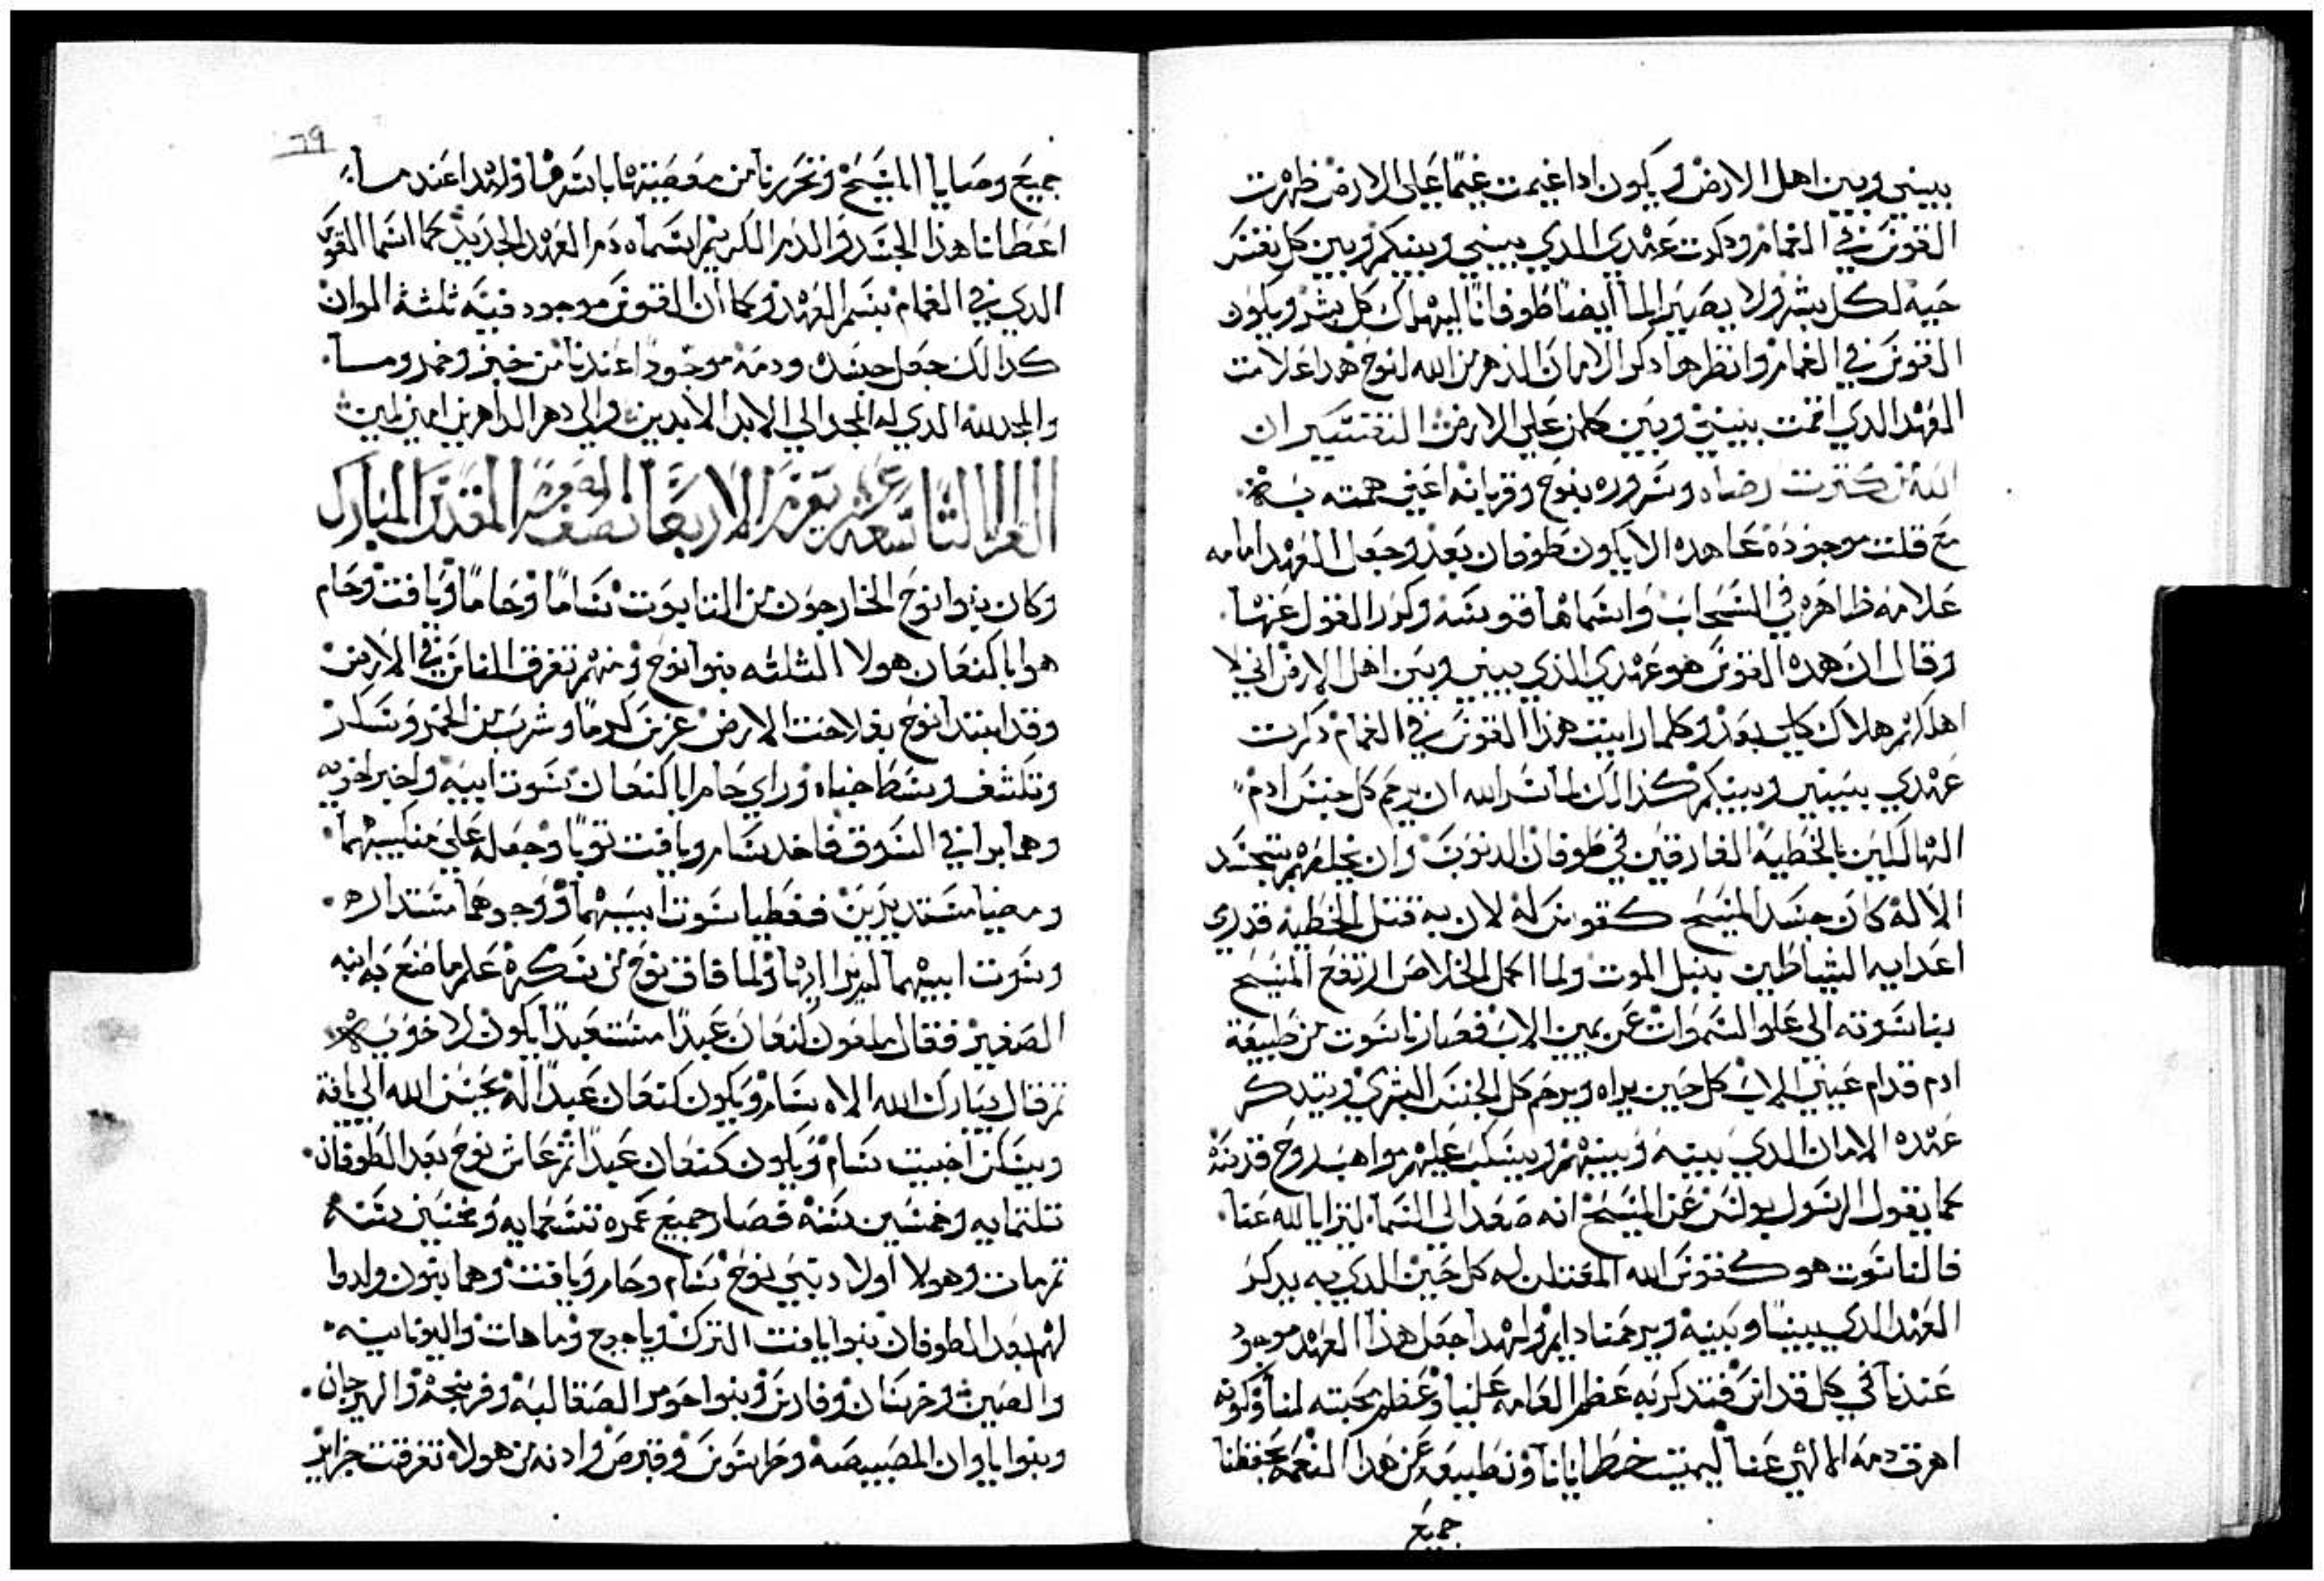 بيني وبين اهل الارض ويكون ادا غيمت غيمًا علي الارض ظهرت
القوس في الغمام ودكرت عهدي الدي بيني وبينكم وبين كل نفس
حيه لكل بشر ولا يصير الما ايضا طوفانًا ليهلك كل بشر ويكون
القوس في الغمام وانظرها دكر الامان الدهر من الله لنوح هدا علامت
العهد الدي اقمت بيني وبين كلمن علي الارض التفسير ان
الله من كترت رضاه وسروره بنوح وقربانه اعني همته
مع قلت موجوده عاهده الا يكون طوفان بعد وجعل العهد امامه
علامه ظاهره في السحاب واسماها قوسه وكرر القول عنها
وقال ان هده القوس هو عهدي الذي بيني وبين اهل الارض اني لا
اهلكهم هلاك كلي بعد وكلما رايت هذا القوس في الغمام دكرت
عهدي بيني وبينكم كذالك لما شا الله ان يرحم كل جنس ادم
الهالكين بالخطية الغارقين في طوفان الدنوب وان يخلصهم بتجسد
الاله كان جسد المسيح كقوس له لان به قتل الخطيه
اعدايه الشياطين بنبل الموت ولما اكمل الخلاص ارتفع المسيح
بناسوته الي علو السموات عن يمين الاب فصار ناسوت من طبيعة
ادم قدام عيني الاب كل حين يراه ويرحم كل الجنس البشري ويتدكر
عهده الامان الدي بينه وبينهم ويسكب عليهم مواهب روح قدسه
كما يقول الرسول بولس عن المسيح انه صعد الي السما ليترايا لله عنا
فالناسوت هو كقوس الله له كل حين الدي به يدكر
العهد الدي بيننا وبينه ويرحمنا دايم ولهدا جعل هذا العهد موجود
عندنا في كل قداس فتدكر به عظم انعامه علينا وعظم محبته لنا وكونه
اهرق دمه الالهي عنا ليميت خطايانا ونطيعه عن هدا النعمه بحفظنا
جميع
٦٩
جميع وصايا المسيح وتحررنا من معصيته
اعطانا هذا الجسد والدم الكريم اسماه دم العهد الجديد كما اسما القوس
الدي في الغمام بسم العهد وكما ان القوس موجود فيه ثلثة الوان
كدالك جعل جسده ودمه موجود عندنا من خبز وخمر وما
والمجد لله الدي له المجد الي الابد الابدين والي دهر الداهرين امين
يوم الاربعا نصف المقدس المبارك
وكان بنوا نوح الخارجون من التابوت سامًا وحامًا ويافت وحام
هوابا كنعان هولا التلته بنوا نوح ومنهم تفرق الناس في الارض
وقد ابتدا نوح بفلاحت الارض غرس كرومًا وشرب من الخمر وسكر
وتكشف وسط خباه وراي حام ابا كنعان سوت ابيه واخبر اخويه
وهما برا في السوق فاخد سام ويافت توبًا وجعله علي منكبيهما
ومضيا مستديرين فغطيا سوت ابيهما ووجوهما مستداره
وسوت ابيهما لم يرا اياها ولما فاق نوح من سكره علم ما صنع به ابنه
الصغير فقال ملعون كنعان عبدًا مستعبدًا يكون لاخويه
تم قال يتبارك الله الاه سام ويكون كنعان عبدًا له يحسن الله الي يافت
ويسكن اخبيت سام ويكون كنعان عبدًا ثم عاش نوح بعد الطوفان
تلتمايه وخمسين سنه فصار جميع عمره تسعمايه وخمسين سنه
تم مات وهولا اولاد بني نوح سام وحام ويافت وهما بنون ولدوا
لهم بعد الطوفان بنوا يافت الترك وياجوج وماهات واليونانيه
والصين وخرسان وفارس وبنوا جومر الصقالبه وفرنجه والهرجان
وبنوا ياوان المصيصه وطرسوس وقبرص وادنه من هولاء تفرقت جزاير